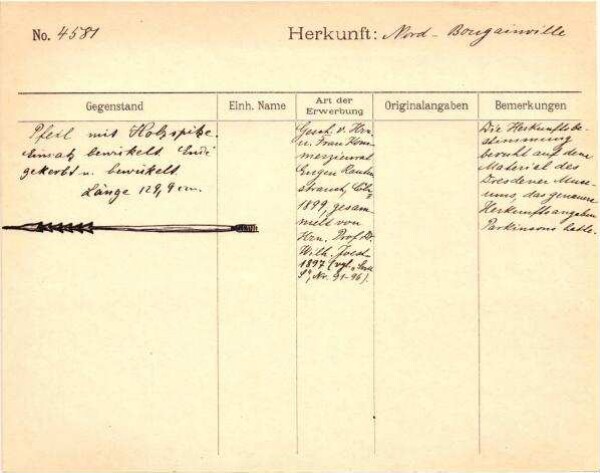 No. 4581
Herkunft: Nord-Bougainville
Gegenstand
Einh. Name
Art der
Erwerbung
Originalangaben
Bemerkungen
Pfeil mit Holzspitze.
Einsatz bewickelt. Ende
gekerbt u. bewickelt.
Länge 129,9 cm.
Gesch. v. Hrn.
u. Frau Kom-
merzienrat
Eugen Rauten-
strauch, Cöln
1899, gesam-
melt von
Hrn. Prof. Dr.
Wilh. Joest
1897 (vgl.
Nr. 91-96).
Die Herkunftsbe-
stimmung
beruht auf dem
Material des
Dresdener Muse-
ums, das genauere
Herkunftsangaben
Parkinsons hatte.